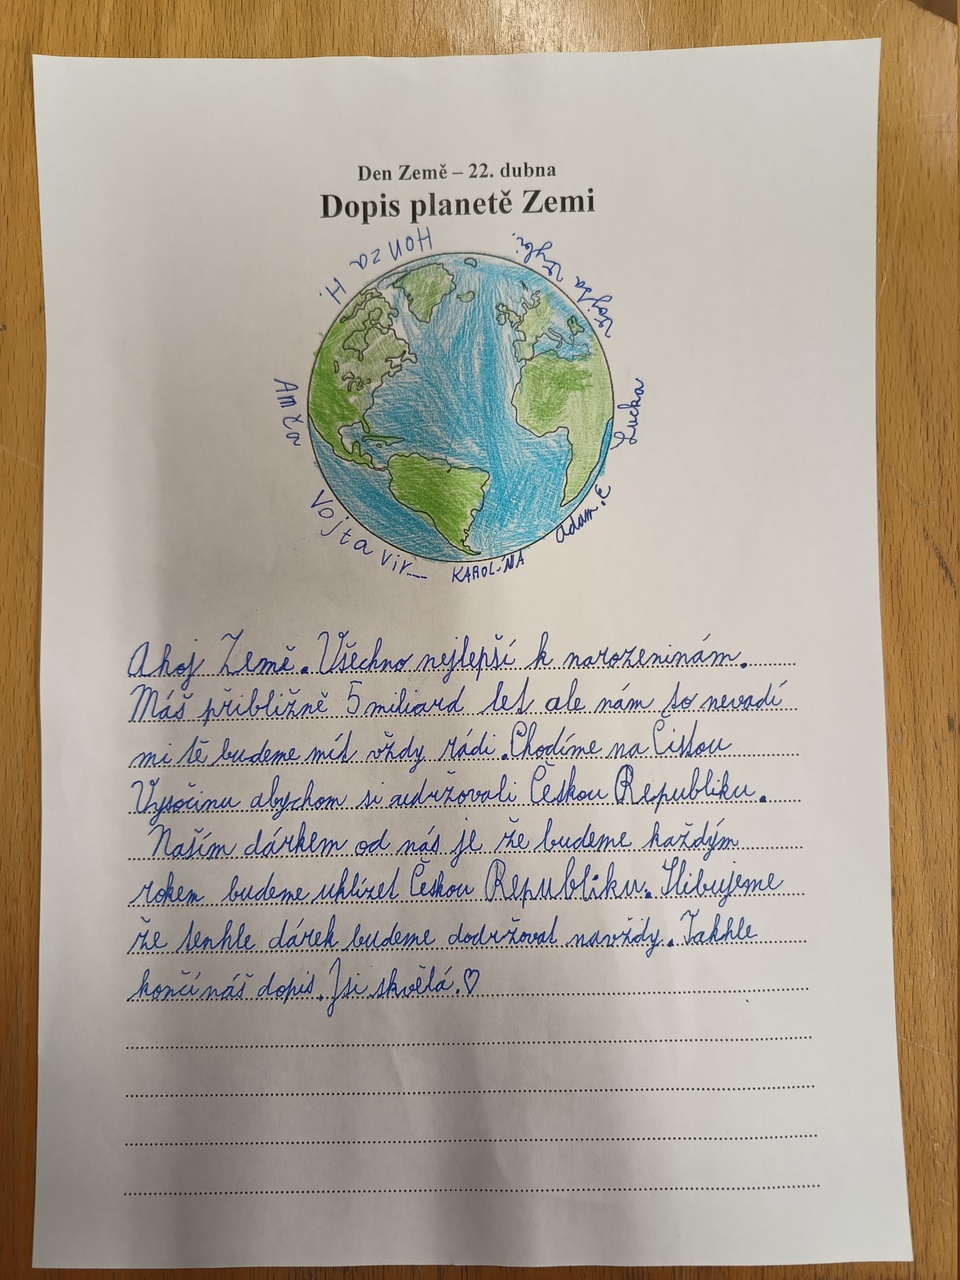 Den Země – 22. dubna
Dopis planetě Zemi
Honza H.
Vojta
Amča
Lucka
Vojta vir...
Adam.E
KAROLÍNA
Ahoj Země. Všechno nejlepší k narozeninám.
Máš přibližně 5 miliard let ale nám to nevadí
mi tě budeme mít vždy rádi. Chodíme na Čistou
Vysočinu abychom si audržovali Českou Republiku.
Naším dárkem od nás je že budeme každým
rokem budeme uklízet Českou Republiku. Slibujeme
že tenhle dárek budeme dodržovat navždy. Takhle
končí náš dopis. Jsi skvělá.♡